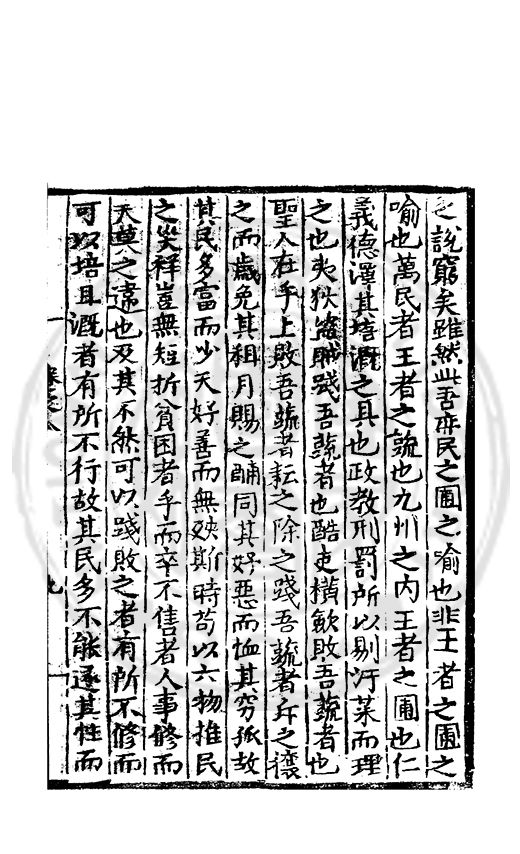 之說窮矣雖然此吾庶民之圃之喻也非王者之圃之
喻也萬民者王者之蔬也九州之内王者之圃也仁
義德澤其培溉之具也政教刑罰所以剔汙萊而理
之也夷狄盜賊踐吾蔬者也酷吏橫歛敗吾蔬者也
聖人在乎上敗吾蔬者耘之除之踐吾蔬者斥之攘
之而歲免其租月賜之酺同其好惡而恤其窮孤故
其民多富而少夭好善而無殃斯時苟以六物推民
之災祥豈無短折貧困者乎而卒不售者人事修而
天莫之違也及其不然可以踐敗之者有所不修而
可以培且溉者有所不行故其民多不能遂其性而
卷之八
九